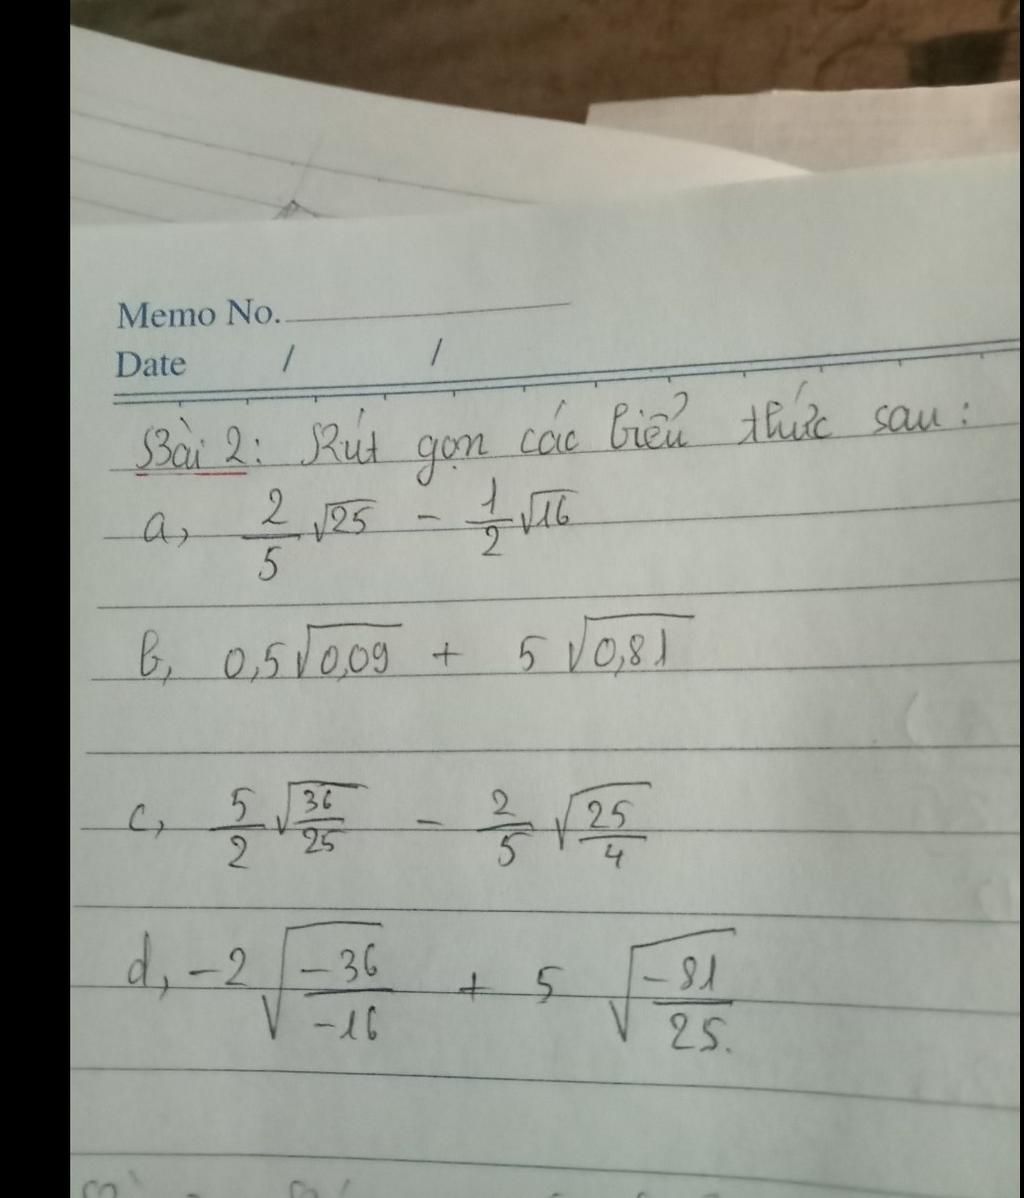 Memo No.
Date / /
Bài 2: Rút gọn các biểu thức sau:
a, 2/5 √25 - 1/2 √16
b, 0,5 √0,09 + 5 √0,81
c, 5/2 √36/25 - 2/5 √25/4
d, -2 √-36/-16 + 5 √-81/25.